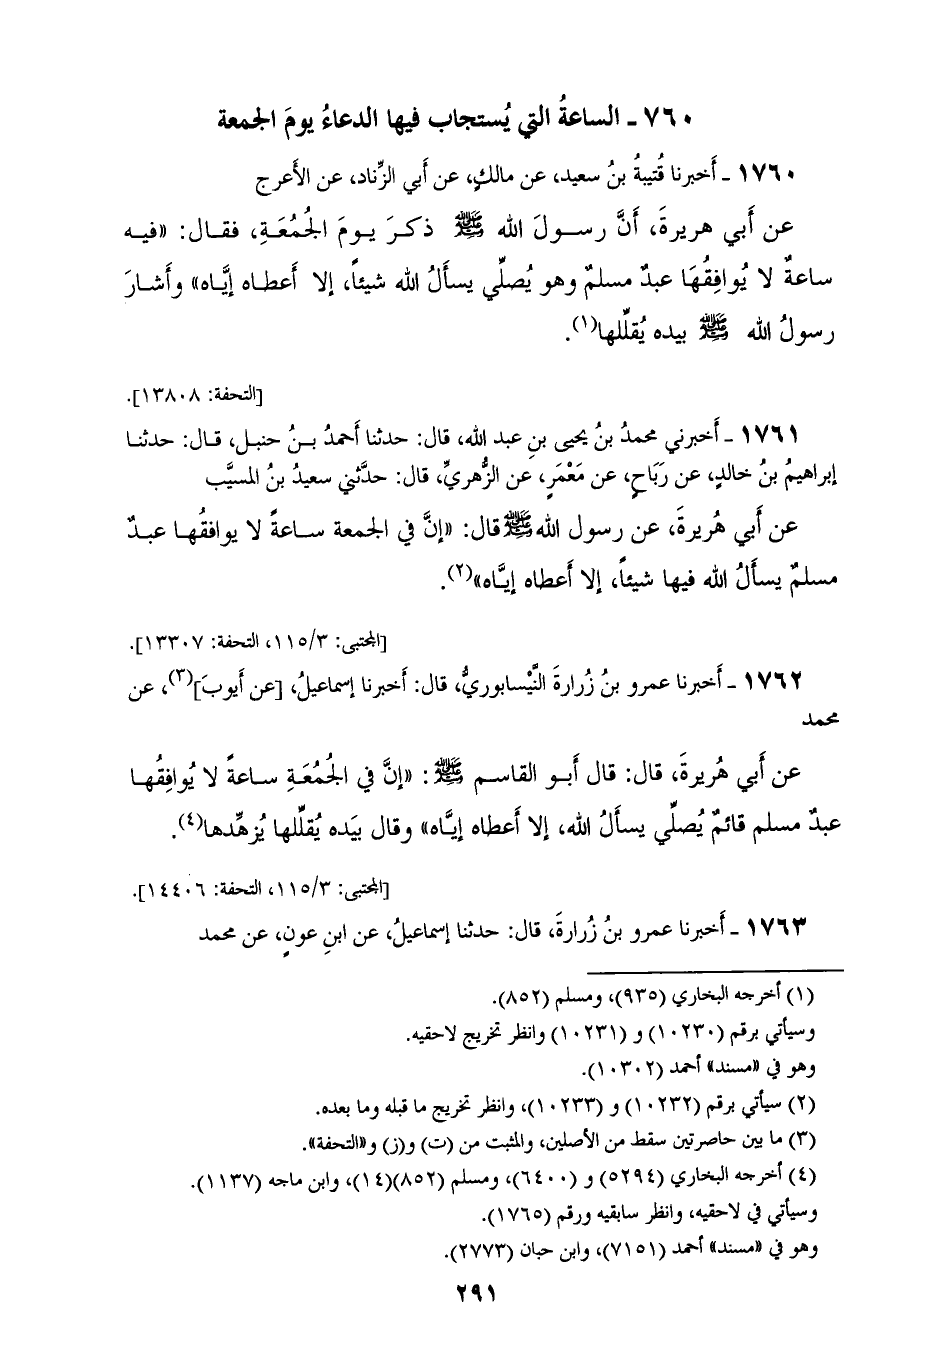 ٧٦٠ ـ الساعةُ التي يُستجاب فيها الدعاءُ يومَ الجمعة
١٧٦٠ ـ أخبرنا قُتيبةُ بنُ سعيد، عن مالكٍ، عن أبي الزِّناد، عن الأعرج
عن أبي هريرةَ، أنَّ رسولَ الله ﷺ ذكرَ يومَ الجُمُعَةِ، فقال: «فيه
ساعةٌ لا يُوافِقُهَا عبدٌ مسلمٌ وهو يُصلِّي يسألُ الله شيئاً، إلا أعطاه إيَّاه» وأشارَ
رسولُ الله ﷺ بيده يُقلِّلها(١).
[التحفة: ١٣٨٠٨].
١٧٦١ ـ أخبرني محمدُ بنُ يحيى بنِ عبد الله، قال: حدثنا أحمدُ بنُ حنبل، قال: حدثنا
إبراهيمُ بنُ خالدٍ، عن رَبَاحٍ، عن مَعْمَرٍ، عن الزُّهريِّ، قال: حدَّثني سعيدُ بنُ المسيَّب
عن أبي هُريرةَ، عن رسول الله ﷺ قال: «إنَّ في الجمعة ساعةً لا يوافقُها عبدٌ
مسلمٌ يسألُ الله فيها شيئاً، إلا أعطاه إيَّاه»(٢).
[المجتبى: ١١٥/٣، التحفة: ١٣٣٠٧].
١٧٦٢ ـ أخبرنا عمرو بنُ زُرارةَ النَّيسابوريُّ، قال: أخبرنا إسماعيلُ، [عن أيوبَ](٣)، عن
محمد
عن أبي هُريرةَ، قال: قال أبو القاسم ﷺ: «إنَّ في الجُمُعَةِ ساعةً لا يُوافِقُها
عبدٌ مسلم قائمٌ يُصلِّي يسألُ الله، إلا أعطاه إيَّاه» وقال بيَده يُقلِّلها يُزهِّدها(٤).
[المجتبى: ١١٥/٣، التحفة: ١٤٤٠٦].
١٧٦٣ ـ أخبرنا عمرو بنُ زُرارةَ، قال: حدثنا إسماعيلُ، عن ابنِ عونٍ، عن محمد
(١) أخرجه البخاري (٩٣٥)، ومسلم (٨٥٢).
وسيأتي برقم (١٠٢٣٠) و (١٠٢٣١) وانظر تخريج لاحقيه.
وهو في «مسند» أحمد (١٠٣٠٢).
(٢) سيأتي برقم (١٠٢٣٢) و (١٠٢٣٣)، وانظر تخريج ما قبله وما بعده.
(٣) ما بين حاصرتين سقط من الأصلين، والمثبت من (ت) و(ز) و«التحفة».
(٤) أخرجه البخاري (٥٢٩٤) و (٦٤٠٠)، ومسلم (٨٥٢)(١٤)، وابن ماجه (١١٣٧).
وسيأتي في لاحقيه، وانظر سابقيه ورقم (١٧٦٥).
وهو في «مسند» أحمد (٧١٥١)، وابن حبان (٢٧٧٣).
٢٩١